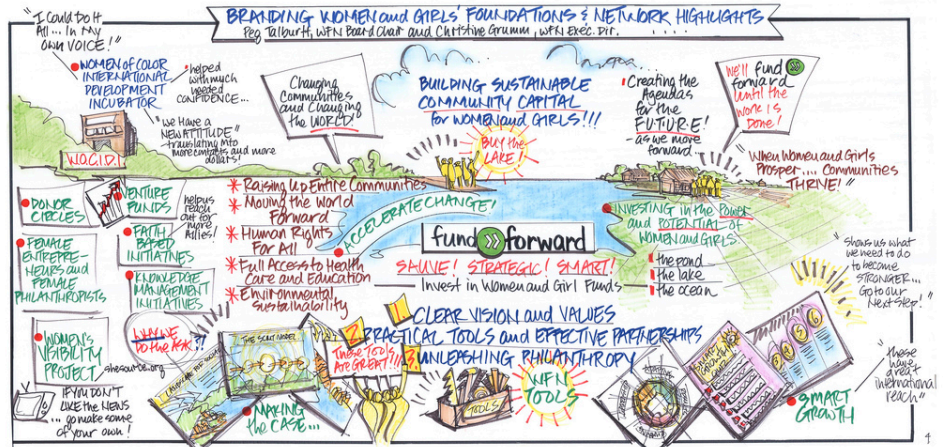 BRANDING WOMEN and GIRLS' FOUNDATIONS & NETWORK HIGHLIGHTS
Peg Talburtt, WFN Board Chair and Christine Grumm, WFN Exec. Dir.
"I Could Do It
All... In my
own VOICE!"
WOMEN of COLOR
INTERNATIONAL
DEVELOPMENT
INCUBATOR
helped
with much
needed
CONFIDENCE...
"We Have a
NEW ATTITUDE"
translating into
more contacts and more
dollars!
W.O.C.I.D.I.
Changing
Communities
and Changing
the WORLD!
BUILDING SUSTAINABLE
COMMUNITY CAPITAL
for WOMEN and GIRLS!!!
BUY the
LAKE!
Creating the
Agendas
for the
FUTURE!
as we move
forward...
We'll fund
forward
until the
work is
Done!
"When Women and Girls
Prosper.... Communities
THRIVE!"
DONOR
CIRCLES
VENTURE
FUNDS
helps
reach
out for
more
Allies!
FAITH
BASED
INITIATIVES
FEMALE
ENTREPRE-
NEURS and
FEMALE
PHILANTHROPISTS
KNOWLEDGE
MANAGEMENT
INITIATIVES
WOMEN'S
VISIBILITY
PROJECT
WHY WE
Do the ASK!?!
shesource.org
IF YOU DON'T
LIKE the NEWS
... go make some
of your own!
* Raising Up Entire Communities
* Moving the World
Forward
* Human Rights
For All
* Full Access to Health
Care and Education
* Environmental
Sustainability
ACCELERATE CHANGE!
fund forward
SAUVE! STRATEGIC! SMART!
Invest in Women and Girl Funds
INVESTING in the POWER
and POTENTIAL of
WOMEN and GIRLS
the pond
the lake
the ocean
shows us what
we need to do
to become
STRONGER...
Go to our
Next Step!
1. CLEAR VISION and VALUES
2. PRACTICAL TOOLS and EFFECTIVE PARTNERSHIPS
3. UNLEASHING PHILANTHROPY
These TOOLS
Are GREAT!!!
MAKING
the CASE...
TOOLS
WFN
TOOLS
SMART
GROWTH
"these
have
great
international
reach"